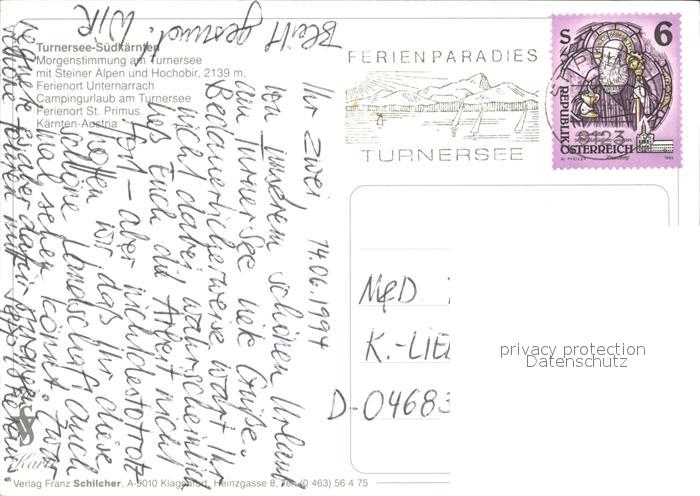 Turnersee-Südkärnten
Morgenstimmung am Turnersee
mit Steiner Alpen und Hochobir, 2139 m,
Ferienort Unternarrach
Campingurlaub am Turnersee
Ferienort St. Primus.
Kärnten-Austria
FERIENPARADIES
TURNERSEE
S 6
REPUBLIK
ÖSTERREICH
9123
14.06.1994
Ihr zwei
von unserem schönen Urlaub
am Turnersee viele Grüße.
Bedauerlicherweise wart Ihr
nicht dabei wahrscheinlich
ließ Euch die Arbeit nicht
fort - aber nichtdestotrotz
hoffen wir das Ihr diese
schöne Landschaft auch
mal sehen könnt. Zwar
ist aber dafür
Bleibt gesund. WIR
MED.
K.-LIE
D-04683
privacy protection
Datenschutz
Verlag Franz Schilcher, A-9010 Klagenfurt, Heinzgasse 8, Tel. (0 463) 56 4 75